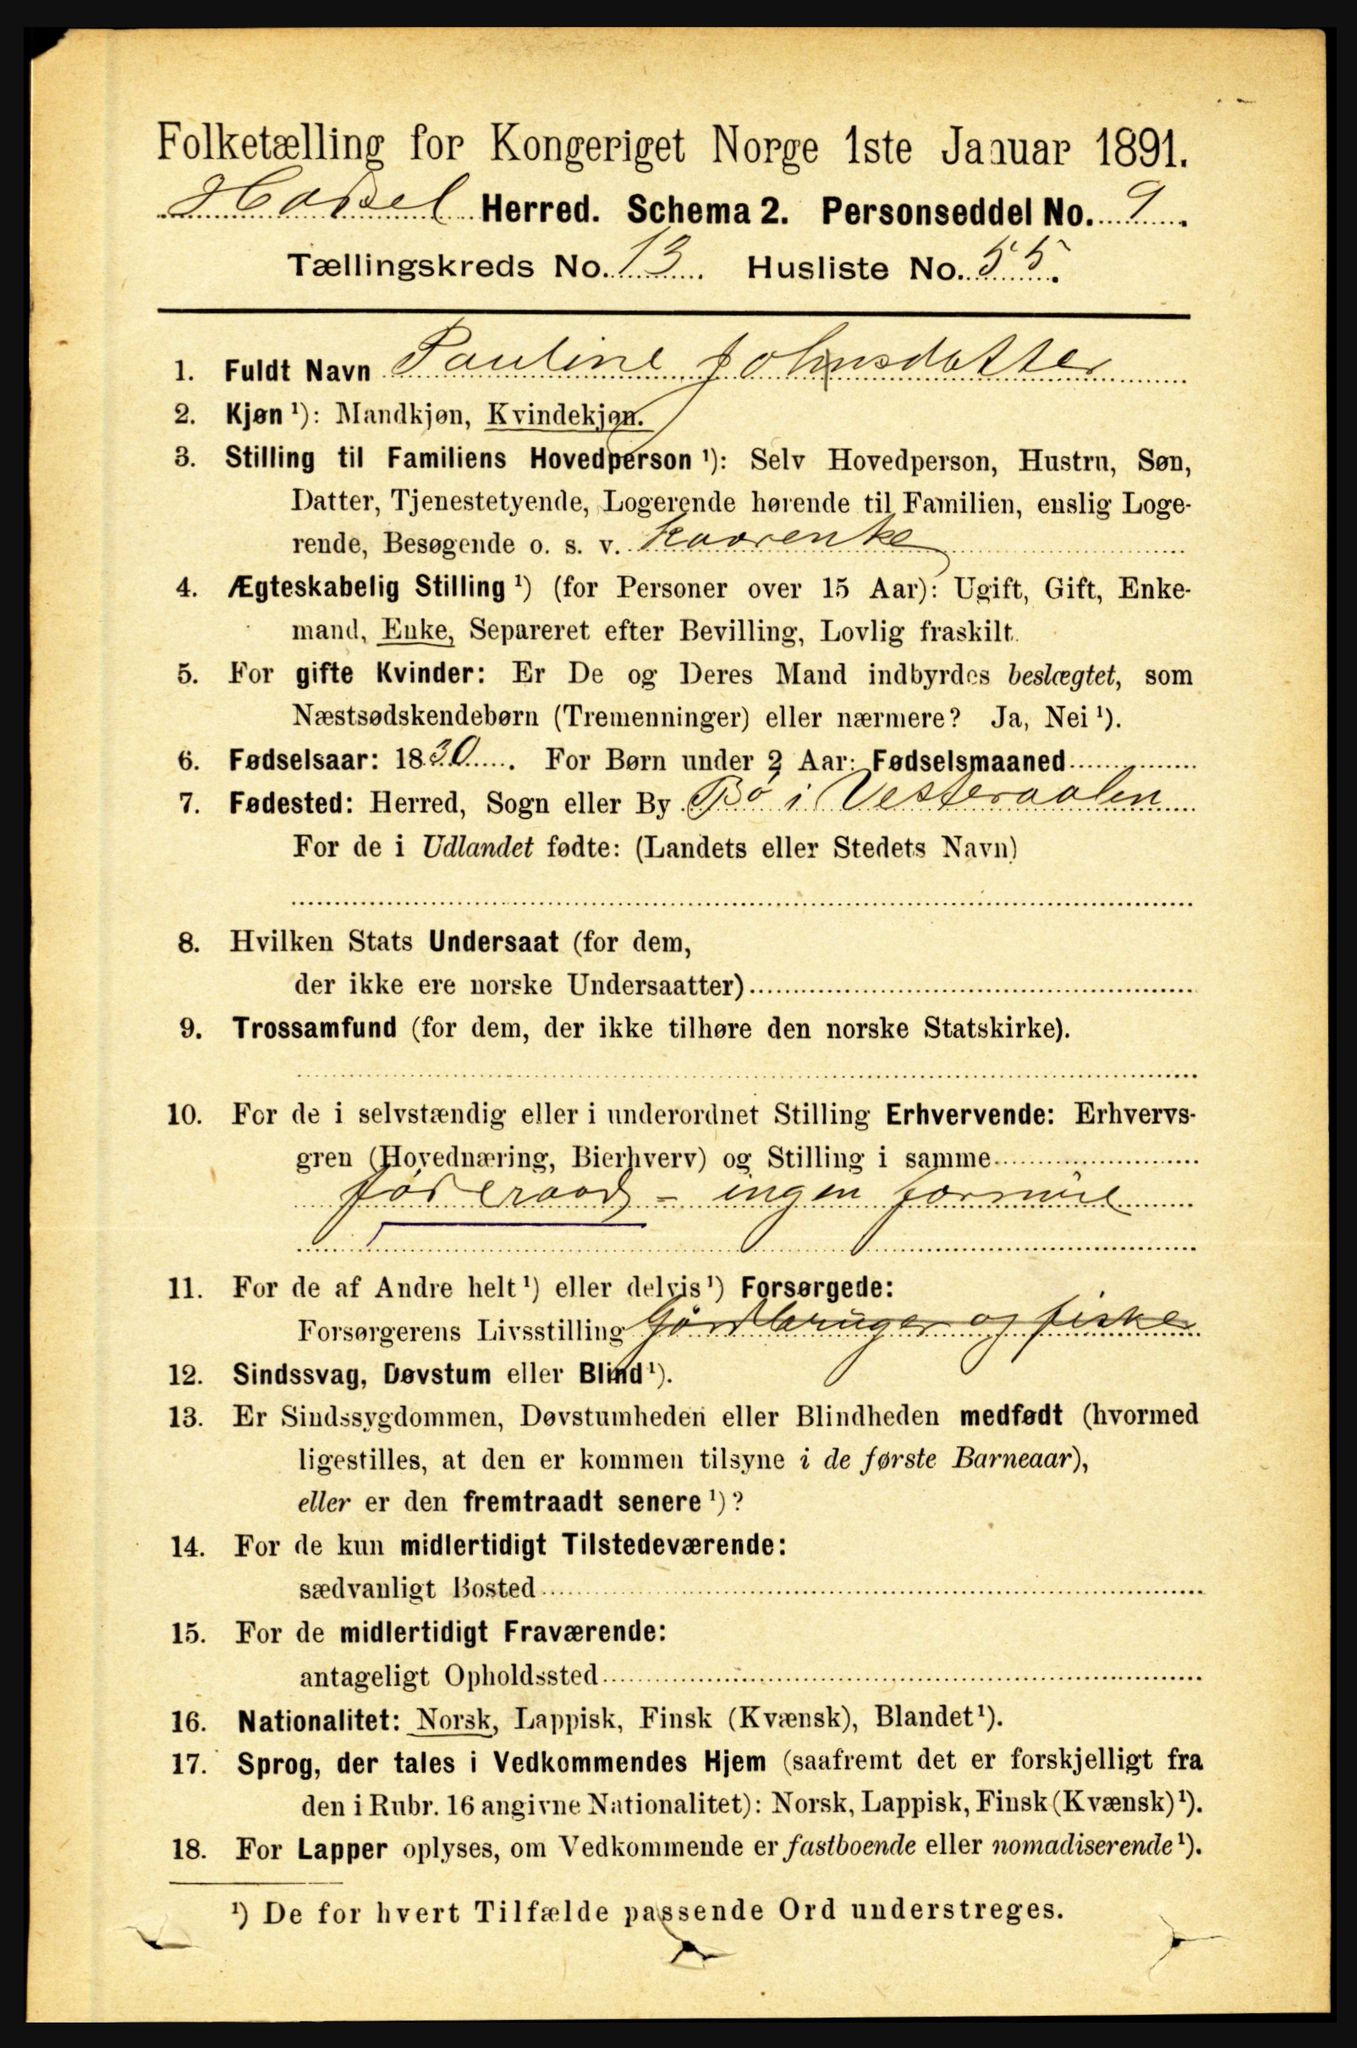 Folketælling for Kongeriget Norge 1ste Januar 1891.
Hadsel Herred. Schema 2. Personseddel No. 9.
Tællingskreds No. 13. Husliste No. 55.
1. Fuldt Navn Pauline Johnsdatter
2. Kjøn ¹): Mandkjøn, Kvindekjøn.
3. Stilling til Familiens Hovedperson ¹): Selv Hovedperson, Hustru, Søn,
Datter, Tjenestetyende, Logerende hørende til Familien, enslig Loge-
rende, Besøgende o. s. v. Kaarenke
4. Ægteskabelig Stilling ¹) (for Personer over 15 Aar): Ugift, Gift, Enke-
mand, Enke, Separeret efter Bevilling, Lovlig fraskilt.
5. For gifte Kvinder: Er De og Deres Mand indbyrdes beslægtet, som
Næstsødskendebørn (Tremenninger) eller nærmere? Ja, Nei ¹).
6. Fødselsaar: 1830. For Børn under 2 Aar: Fødselsmaaned
7. Fødested: Herred, Sogn eller By Bø i Vesteraalen
For de i Udlandet fødte: (Landets eller Stedets Navn)
8. Hvilken Stats Undersaat (for dem,
der ikke ere norske Undersaatter)
9. Trossamfund (for dem, der ikke tilhøre den norske Statskirke).
10. For de i selvstændig eller i underordnet Stilling Erhvervende: Erhvervs-
gren (Hovednæring, Bierhverv) og Stilling i samme
føderaad - ingen formue
11. For de af Andre helt ¹) eller delvis ¹) Forsørgede:
Forsørgerens Livsstilling Gårdbruger og fisker
12. Sindssvag, Døvstum eller Blind ¹).
13. Er Sindssygdommen, Døvstumheden eller Blindheden medfødt (hvormed
ligestilles, at den er kommen tilsyne i de første Barneaar),
eller er den fremtraadt senere ¹)?
14. For de kun midlertidigt Tilstedeværende:
sædvanligt Bosted
15. For de midlertidigt Fraværende:
antageligt Opholdssted
16. Nationalitet: Norsk, Lappisk, Finsk (Kvænsk), Blandet ¹).
17. Sprog, der tales i Vedkommendes Hjem (saafremt det er forskjelligt fra
den i Rubr. 16 angivne Nationalitet): Norsk, Lappisk, Finsk (Kvænsk) ¹).
18. For Lapper oplyses, om Vedkommende er fastboende eller nomadiserende ¹).
¹) De for hvert Tilfælde passende Ord understreges.